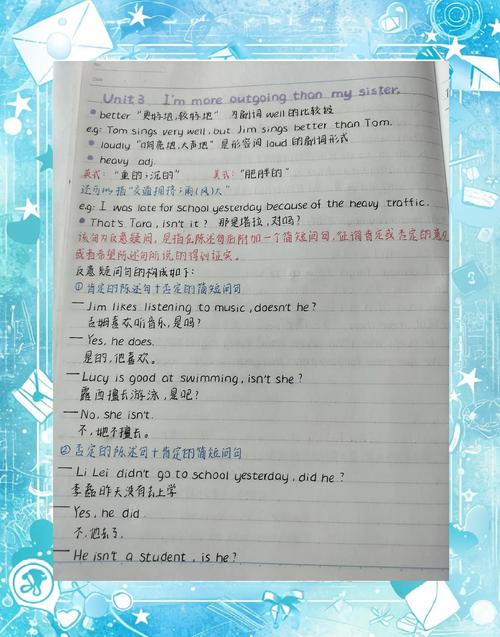 Date
Unit 3 I'm more outgoing than my sister.
better "更好地,较好地" 为副词 well 的比较级
e.g: Tom sings very well, but Jim sings better than Tom.
loudly "响亮地,大声地" 是形容词 loud 的副词形式
heavy adj.
英式: "重的;沉的" 美式: "肥胖的"
还可以指"交通拥挤;雨(风)大"
e.g: I was late for school yesterday because of the heavy traffic.
That's Tara, isn't it? 那是塔拉,对吗?
该句为反意疑问,是指在陈述句后附加一个简短问句,征询肯定或否定的意见
或者希望陈述句所说的得到证实。
反意疑问句的构成如下:
①肯定的陈述句+否定的简短问句
— Jim likes listening to music, doesn't he?
吉姆喜欢听音乐,是吗?
— Yes, he does.
是的,他喜欢。
— Lucy is good at swimming, isn't she?
露西擅长游泳,是吧?
— No, she isn't.
不,她不擅长。
②否定的陈述句+肯定的简短问句
— Li Lei didn't go to school yesterday, did he?
李磊昨天没有去上学
— Yes, he did.
不,他去了。
— He isn't a student, is he?